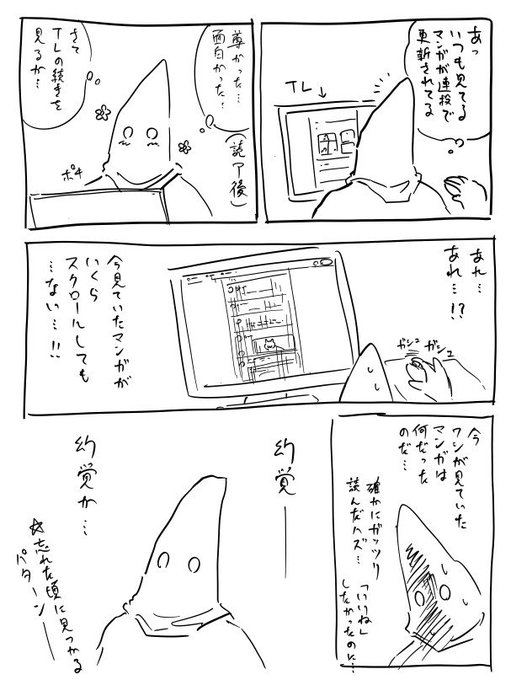 あっ
いつも見てる
マンガが連投で
更新されてる
TL
尊かった…
面白かった…
(読了後)
さて
TLの続きを
見るか…
ポチ
あれ…
あれ…!?
ガシュ
ガシュ
今見ていたマンガが
いくら
スクロールしても
…ない…!!
今
ワシが見ていた
マンガは
何だった
のだ…
確かにガッツリ
読んだハズ…
「いいね」
したかったのに…
幻覚――
幻覚か…
☆忘れた頃に見つかる
パターン――